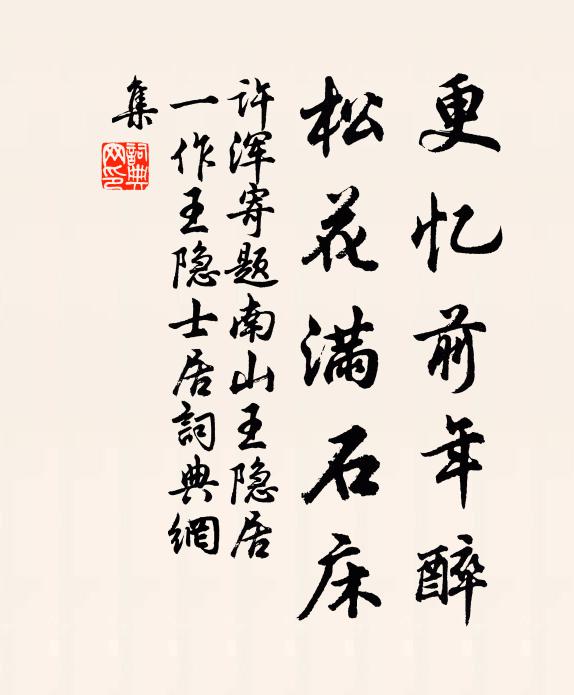 更忆前年醉
松花满石床
许浑寄题南山王隐居
一作王隐士居詞典網
集
詞典
网印